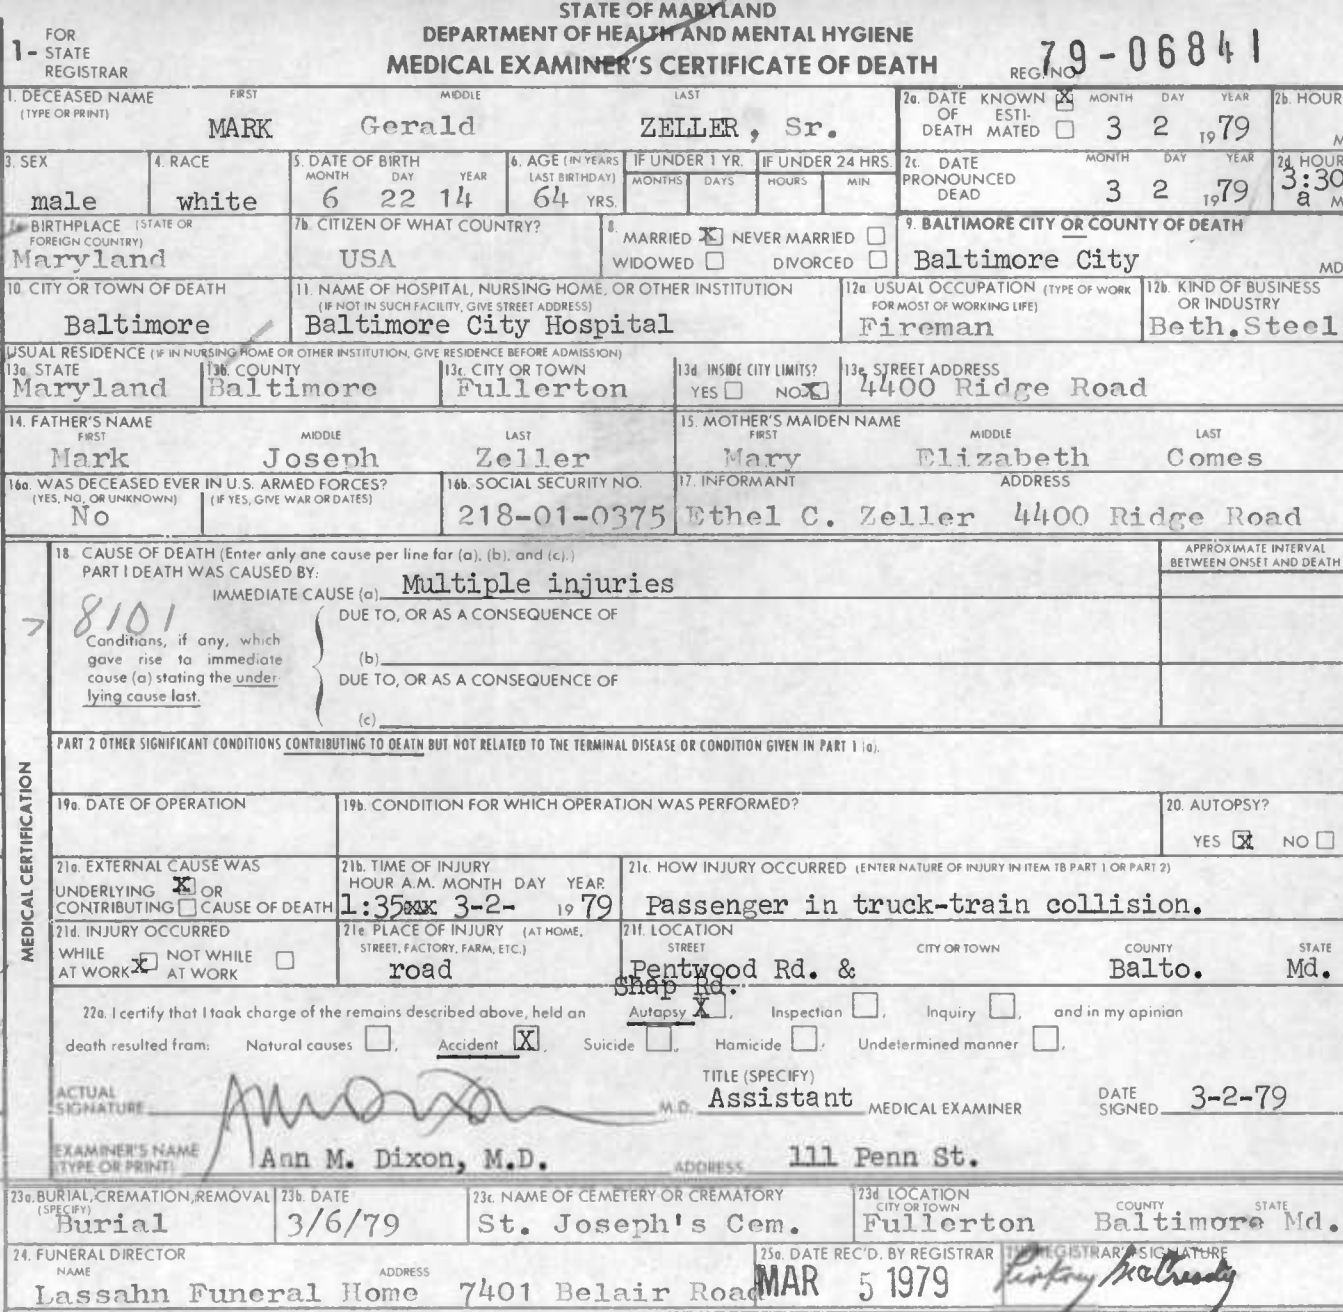 STATE OF MARYLAND
DEPARTMENT OF HEALTH AND MENTAL HYGIENE
MEDICAL EXAMINER'S CERTIFICATE OF DEATH
1- FOR STATE REGISTRAR
REG. NO. 79-06841
1. DECEASED NAME (TYPE OR PRINT) FIRST MIDDLE LAST
MARK Gerald ZELLER, Sr.
2a. DATE OF DEATH KNOWN X ESTI-MATED MONTH DAY YEAR
3 2 1979
2b. HOUR M
3. SEX
male
4. RACE
white
5. DATE OF BIRTH MONTH DAY YEAR
6 22 14
6. AGE (IN YEARS LAST BIRTHDAY)
64 YRS.
IF UNDER 1 YR. MONTHS DAYS
IF UNDER 24 HRS. HOURS MIN
2c. DATE PRONOUNCED DEAD MONTH DAY YEAR
3 2 1979
2d. HOUR
3:30 a M
BIRTHPLACE (STATE OR FOREIGN COUNTRY)
Maryland
7b. CITIZEN OF WHAT COUNTRY?
USA
8. MARRIED X NEVER MARRIED
WIDOWED DIVORCED
9. BALTIMORE CITY OR COUNTY OF DEATH
Baltimore City MD
10. CITY OR TOWN OF DEATH
Baltimore
11. NAME OF HOSPITAL, NURSING HOME, OR OTHER INSTITUTION
(IF NOT IN SUCH FACILITY, GIVE STREET ADDRESS)
Baltimore City Hospital
12a USUAL OCCUPATION (TYPE OF WORK FOR MOST OF WORKING LIFE)
Fireman
12b. KIND OF BUSINESS OR INDUSTRY
Beth.Steel
USUAL RESIDENCE (IF IN NURSING HOME OR OTHER INSTITUTION, GIVE RESIDENCE BEFORE ADMISSION)
13a. STATE
Maryland
13b. COUNTY
Baltimore
13c. CITY OR TOWN
Fullerton
13d. INSIDE CITY LIMITS?
YES NO X
13e. STREET ADDRESS
4400 Ridge Road
14. FATHER'S NAME
FIRST MIDDLE LAST
Mark Joseph Zeller
15. MOTHER'S MAIDEN NAME
FIRST MIDDLE LAST
Mary Elizabeth Comes
16a. WAS DECEASED EVER IN U.S. ARMED FORCES?
(YES, NO, OR UNKNOWN) (IF YES, GIVE WAR OR DATES)
No
16b. SOCIAL SECURITY NO.
218-01-0375
17. INFORMANT ADDRESS
Ethel C. Zeller 4400 Ridge Road
MEDICAL CERTIFICATION
18. CAUSE OF DEATH (Enter only one cause per line for (a), (b), and (c).)
PART I DEATH WAS CAUSED BY:
IMMEDIATE CAUSE (a) Multiple injuries
APPROXIMATE INTERVAL BETWEEN ONSET AND DEATH
8101
DUE TO, OR AS A CONSEQUENCE OF
Conditions, if any, which gave rise to immediate cause (a) stating the underlying cause last.
(b)
DUE TO, OR AS A CONSEQUENCE OF
(c)
PART 2 OTHER SIGNIFICANT CONDITIONS CONTRIBUTING TO DEATH BUT NOT RELATED TO THE TERMINAL DISEASE OR CONDITION GIVEN IN PART 1 (a).
19a. DATE OF OPERATION
19b. CONDITION FOR WHICH OPERATION WAS PERFORMED?
20. AUTOPSY?
YES X NO
21a. EXTERNAL CAUSE WAS
UNDERLYING X OR
CONTRIBUTING CAUSE OF DEATH
21b. TIME OF INJURY
HOUR A.M. MONTH DAY YEAR
1:35xx 3-2- 1979
21c. HOW INJURY OCCURRED (ENTER NATURE OF INJURY IN ITEM 18 PART 1 OR PART 2)
Passenger in truck-train collision.
21d. INJURY OCCURRED
WHILE AT WORK X NOT WHILE AT WORK
21e. PLACE OF INJURY (AT HOME, STREET, FACTORY, FARM, ETC.)
road
21f. LOCATION
STREET CITY OR TOWN COUNTY STATE
Pentwood Rd. & Balto. Md.
Shap Rd.
22a. I certify that I took charge of the remains described above, held an Autopsy X, Inspection, Inquiry, and in my opinion
death resulted from: Natural causes, Accident X, Suicide, Homicide, Undetermined manner.
ACTUAL SIGNATURE Ann Dixon M.D.
TITLE (SPECIFY)
Assistant MEDICAL EXAMINER
DATE SIGNED 3-2-79
EXAMINER'S NAME (TYPE OR PRINT) Ann M. Dixon, M.D. ADDRESS 111 Penn St.
23a. BURIAL, CREMATION, REMOVAL (SPECIFY)
Burial
23b. DATE
3/6/79
23c. NAME OF CEMETERY OR CREMATORY
St. Joseph's Cem.
23d. LOCATION
CITY OR TOWN COUNTY STATE
Fullerton Baltimore Md.
24. FUNERAL DIRECTOR
NAME ADDRESS
Lassahn Funeral Home 7401 Belair Road
25a. DATE REC'D. BY REGISTRAR
MAR 5 1979
REGISTRAR'S SIGNATURE